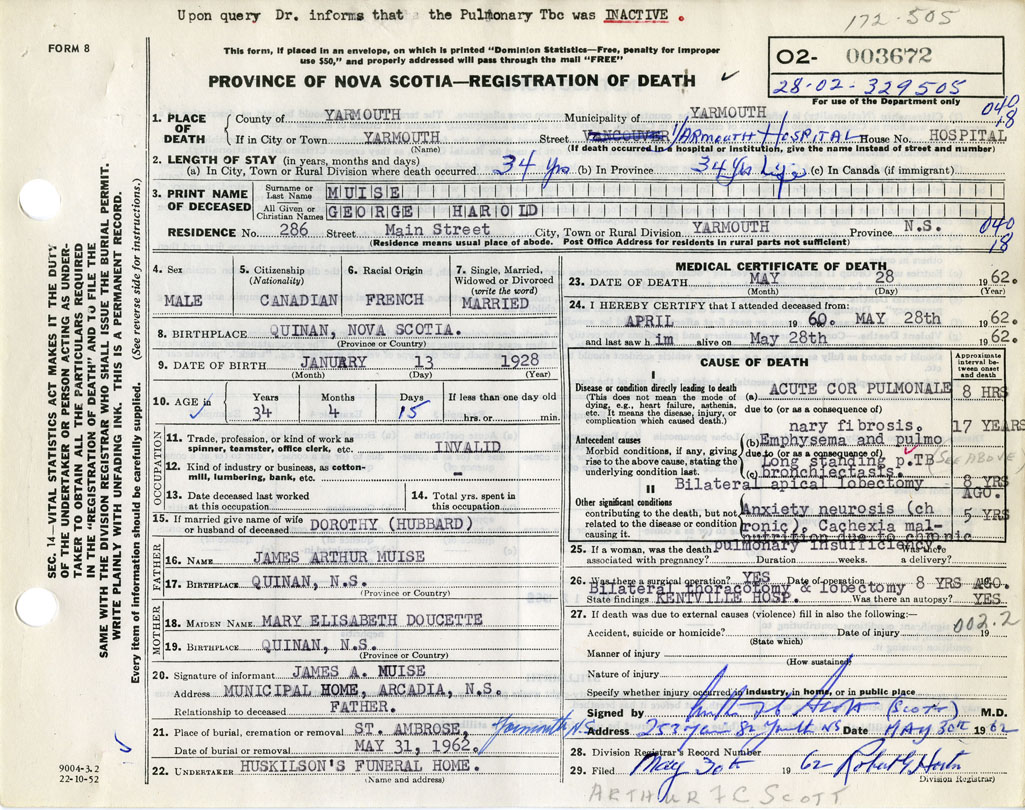 Upon query Dr. informs that the Pulmonary Tbc was INACTIVE.
172-505
FORM 8
This form, if placed in an envelope, on which is printed "Dominion Statistics—Free, penalty for improper
use $50," and properly addressed will pass through the mail "FREE"
PROVINCE OF NOVA SCOTIA—REGISTRATION OF DEATH ✓
02- 003672
28-02-329505
For use of the Department only
040
18
1. PLACE OF DEATH
County of YARMOUTH Municipality of YARMOUTH
If in City or Town YARMOUTH Street VANCOUVER YARMOUTH HOSPITAL House No. HOSPITAL
(Name) (If death occurred in a hospital or institution, give the name instead of street and number)
2. LENGTH OF STAY (in years, months and days)
(a) In City, Town or Rural Division where death occurred 34 yrs (b) In Province 34 Yrs Life (c) In Canada (if immigrant)
3. PRINT NAME OF DECEASED
Surname or Last Name MUISE
All Given or Christian Names GEORGE HAROLD
RESIDENCE No. 286 Street Main Street City, Town or Rural Division YARMOUTH Province N.S.
(Residence means usual place of abode. Post Office Address for residents in rural parts not sufficient)
040
18
4. Sex
MALE
5. Citizenship
(Nationality)
CANADIAN
6. Racial Origin
FRENCH
7. Single, Married,
Widowed or Divorced
(write the word)
MARRIED
8. BIRTHPLACE QUINAN, NOVA SCOTIA.
(Province or Country)
9. DATE OF BIRTH JANUARY 13 1928
(Month) (Day) (Year)
10. AGE in ✓ Years Months Days If less than one day old
34 4 15 hrs. or min.
OCCUPATION
11. Trade, profession, or kind of work as
spinner, teamster, office clerk, etc. INVALID
12. Kind of industry or business, as cotton-
mill, lumbering, bank, etc. -
13. Date deceased last worked
at this occupation
14. Total yrs. spent in
this occupation
15. If married give name of wife
or husband of deceased DOROTHY (HUBBARD)
FATHER
16. NAME JAMES ARTHUR MUISE
17. BIRTHPLACE QUINAN, N.S.
(Province or Country)
MOTHER
18. MAIDEN NAME MARY ELISABETH DOUCETTE
19. BIRTHPLACE QUINAN, N.S.
(Province or Country)
20. Signature of informant JAMES A. MUISE
Address MUNICIPAL HOME, ARCADIA, N.S.
Relationship to deceased FATHER.
21. Place of burial, cremation or removal ST. AMBROSE, Yarmouth N.S.
Date of burial or removal MAY 31, 1962.
22. UNDERTAKER HUSKILSON'S FUNERAL HOME.
(Name and address)
MEDICAL CERTIFICATE OF DEATH
23. DATE OF DEATH MAY 28 1962.
(Month) (Day) (Year)
24. I HEREBY CERTIFY that I attended deceased from:
APRIL 1960. MAY 28th 1962.
and last saw him alive on May 28th 1962.
CAUSE OF DEATH
Approximate
interval be-
tween onset
and death
I
Disease or condition directly leading to death
(This does not mean the mode of
dying, e.g., heart failure, asthenia,
etc. It means the disease, injury, or
complication which caused death.)
(a) ACUTE COR PULMONALE 8 HRS
due to (or as a consequence of)
nary fibrosis. 17 YEARS
Antecedent causes
Morbid conditions, if any, giving
rise to the above cause, stating the
underlying condition last.
(b) Emphysema and pulmo
due to (or as a consequence of)
Long standing p.TB (SEE ABOVE)
(c) bronchiectasis.
Bilateral apical lobectomy 8 YRS
AGO.
II
Other significant conditions
contributing to the death, but not
related to the disease or condition
causing it.
Anxiety neurosis (ch 5 YRS
ronic). Cachexia mal-
nutrition due to chronic
pulmonary insufficiency
25. If a woman, was the death Was there
associated with pregnancy? Duration weeks. a delivery?
26. Was there a surgical operation? YES Date of operation 8 YRS AGO. 19
Bilateral thoracotomy & lobectomy
State findings KENTVILLE HOSP. Was there an autopsy? YES
27. If death was due to external causes (violence) fill in also the following:—
002.2
Accident, suicide or homicide? Date of injury 19
(State which)
Manner of injury
(How sustained)
Nature of injury
Specify whether injury occurred in industry, in home, or in public place
Signed by (SCOTT) M.D.
Address 253 Main St Yarmouth NS Date MAY 30th 1962
28. Division Registrar's Record Number
29. Filed May 30th 1962
Division Registrar)
ARTHUR F C SCOTT
SEC. 14—VITAL STATISTICS ACT MAKES IT THE DUTY
OF THE UNDERTAKER OR PERSON ACTING AS UNDER-
TAKER TO OBTAIN ALL THE PARTICULARS REQUIRED
IN THE "REGISTRATION OF DEATH" AND TO FILE THE
SAME WITH THE DIVISION REGISTRAR WHO SHALL ISSUE THE BURIAL PERMIT.
WRITE PLAINLY WITH UNFADING INK. THIS IS A PERMANENT RECORD.
Every item of information should be carefully supplied. (See reverse side for instructions.)
✓
9004-3.2
22-10-52